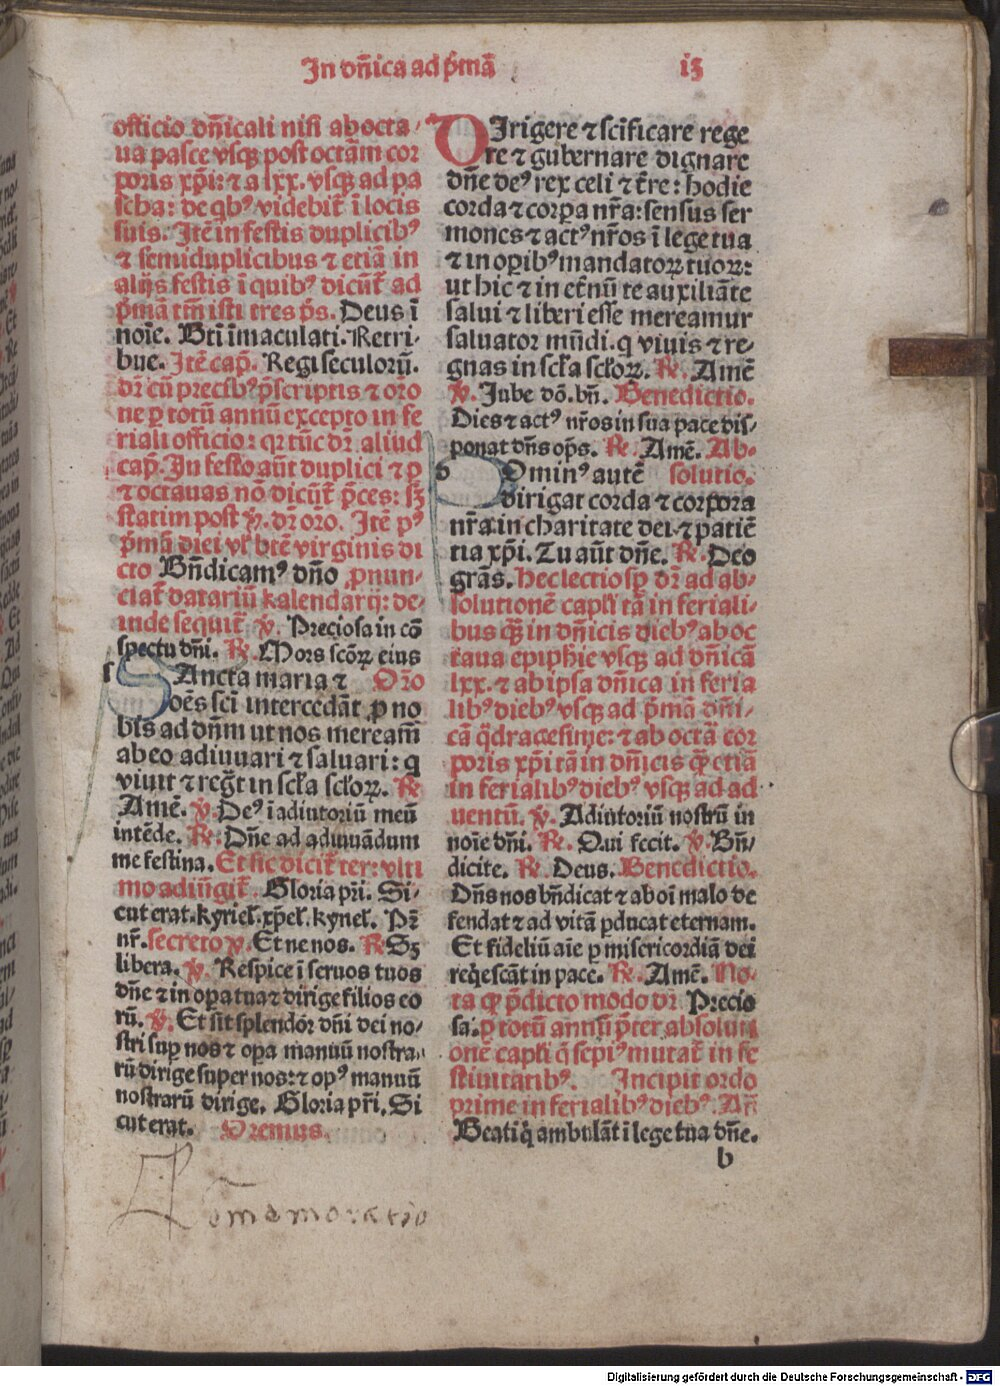 In dn̄ica ad p̄mā
13
officio dn̄icali nisi ab octa/
ua pasce vsq̨ post octām cor
poris xp̄i: ⁊ a lxx. vsq̨ ad pa
scha: de qbꝰ videbit̄ ī locis
suis. Itē in festis duplicibꝰ
⁊ semiduplicibus ⁊ etiā in
alijs festis ī quibꝰ dicūt̄ ad
p̄mā tm̄ isti tres p̄s. Deus ī
noīe. Bti īmaculati. Retri/
bue. Itē cap̄. Regi seculorū.
dr̄ cū precibꝰ p̄scriptis ⁊ orō
ne ꝑ totū annū excepto in fe
riali officio: qꝛ tūc dr̄ aliud
cap̄. In festo aūt duplici ⁊ ꝑ
⁊ octauas nō dicūt̄ p̄ces: sꝫ
statim post ℣. dr̄ orō. Itē pꝰ
p̄mā diei vl̄ btē virginis di
cto Bn̄dicamꝰ dn̄o ꝓnun/
ciat̄ datariū kalendarij: de/
inde sequit̄ ℣. Preciosa in cō
spectu dn̄i. ℟. Mors scōꝝ eius
s SAncta maria ⁊ Orō
oēs scī intercedāt ꝓ no
bis ad dn̄m ut nos meream̄
ab eo adiuuari ⁊ saluari: q
viuit ⁊ reḡt in scl̄a scl̄oꝝ. ℟
Amē. ℣. Deꝰ ī adiutoriū meū
intēde. ℟. Dn̄e ad adiuuādum
me festina. Et sic dicit̄ ter: vlti
mo adiūgit̄. Gloria pr̄i. Si/
cut erat. kyriel̄. xp̄el̄. kyriel̄. Pr̄
nr̄. secreto ℣. Et ne nos. ℟ Sꝫ
libera. ℣. Respice ī seruos tuos
dn̄e ⁊ in oꝑa tua ⁊ dirige filios eo
rū. ℣. Et sit splendōr dn̄i dei no/
stri suꝑ nos ⁊ oꝑa manuū nostra/
rū dirige super nos: ⁊ opꝰ manuū
nostrarū dirige. Gloria pr̄i. Si
cut erat. Oremus.
DIrigere ⁊ scīficare rege
re ⁊ gubernare dignare
dn̄e deꝰ rex celi ⁊ t̄re: hodie
corda ⁊ corꝑa nr̄a: sensus ser
mones ⁊ actꝰ nr̄os ī lege tua
⁊ in oꝑibꝰ mandatoꝝ tuoꝝ:
ut hic ⁊ in et̄nū te auxiliāte
salui ⁊ liberi esse mereamur
saluator mūdi. q viuis ⁊ re/
gnas in scl̄a scl̄oꝝ. ℟. Amē
℣. Jube dō. bn̄. Benedictio.
Dies ⁊ actꝰ nr̄os in sua pace dis/
ponat dn̄s op̄s. ℟. Amē. Ab/
d Dominꝰ autē solutio.
dirigat corda ⁊ corpora
nr̄a in charitate dei ⁊ patiē
tia xp̄i. Tu aūt dn̄e. ℟. Deo
grās. hec lectio sꝑ dr̄ ad ab/
solutionē capl̄i tā in feriali/
bus q̄ in dn̄icis diebꝰ ab oc
taua epiphie vsq̨ ad dn̄icā
lxx. ⁊ ab ipsa dn̄ica in feria
libꝰ diebꝰ vsq̨ ad p̄mā dn̄i/
cā q̄dragesime: ⁊ ab octā cor
poris xp̄i tā in dn̄icis q̄ etiā
in ferialibꝰ diebꝰ vsq̨ ad ad
uentū. ℣. Adiutoriū nostrū in
noīe dn̄i. ℟. Qui fecit. ℣. Bn̄/
dicite. ℟. Deus. Benedictio.
Dn̄s nos bn̄dicat ⁊ ab oī malo de
fendat ⁊ ad vitā ꝑducat eternam.
Et fideliū aīe ꝑ misericordiā dei
reqescāt in pace. ℟. Amē. No/
ta ꝙ p̄dicto modo dr̄ Precio
sa. ꝑ totū annū p̄ter absoluti
onē capl̄i q̄ sepiꝰ mutat̄ in fe
stiuitatibꝰ. Incipit ordo
prime in ferialibꝰ diebꝰ. An̄
Beati q̄ ambulāt ī lege tua dn̄e.
b
Cōmemoratio
Digitalisierung gefördert durch die Deutsche Forschungsgemeinschaft - DFG